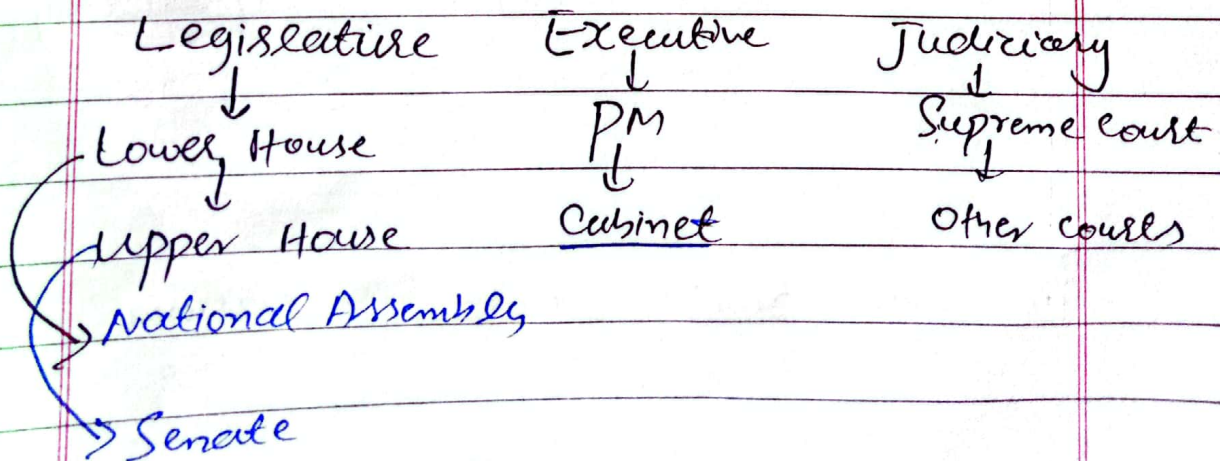 Legislature Executive Judiciary
Lower House PM Supreme Court
Upper House Cabinet Other courts
National Assembly
Senate